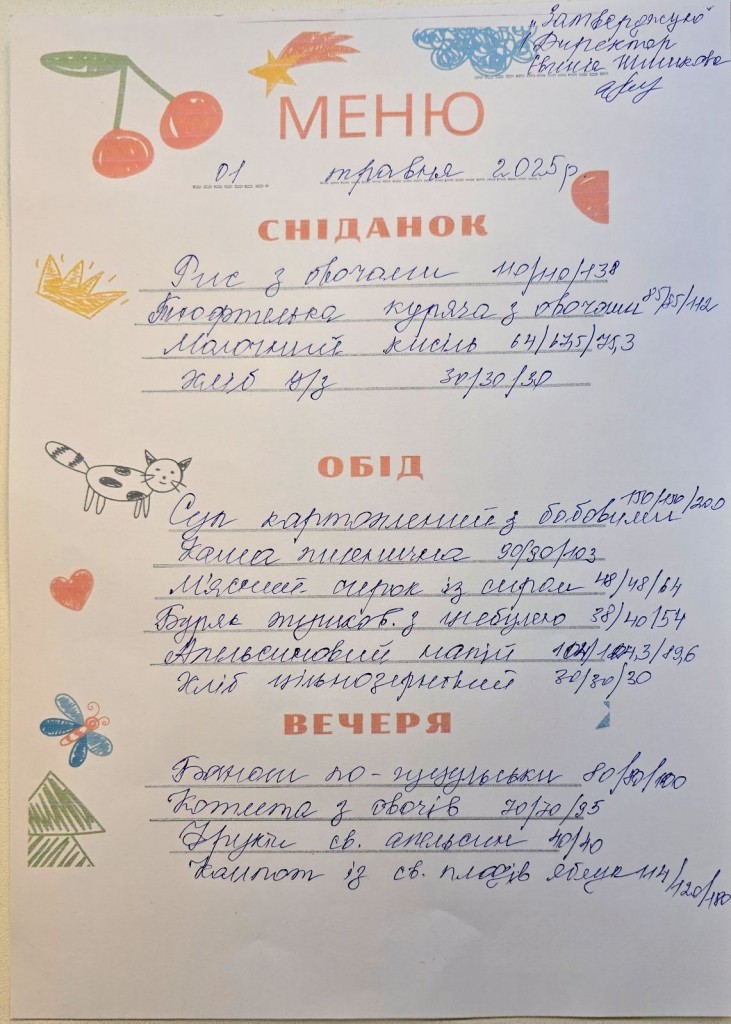 „Затверджую"
Директор
Євгенія Шишкова
МЕНЮ
01 травня 2025р
СНІДАНОК
Рис з овочами 110/110/138
Тюфтелька куряча з овочами 85/85/112
Молочний кисіль 64/67,5/75,3
Хліб ц/з 30/30/30
ОБІД
Суп картопляний з бобовими 150/150/200
Каша пшенична 90/90/103
М'ясний сирок із сиром 48/48/64
Буряк тушков. з цибулею 38/40/54
Апельсиновий напій 104/124,3/89,6
Хліб цільнозерновий 30/30/30
ВЕЧЕРЯ
Банош по-гуцульськи 80/80/100
Котлета з овочів 70/70/95
Фрукти св. апельсин 40/40
Компот із св. плодів яблук 114/120/180